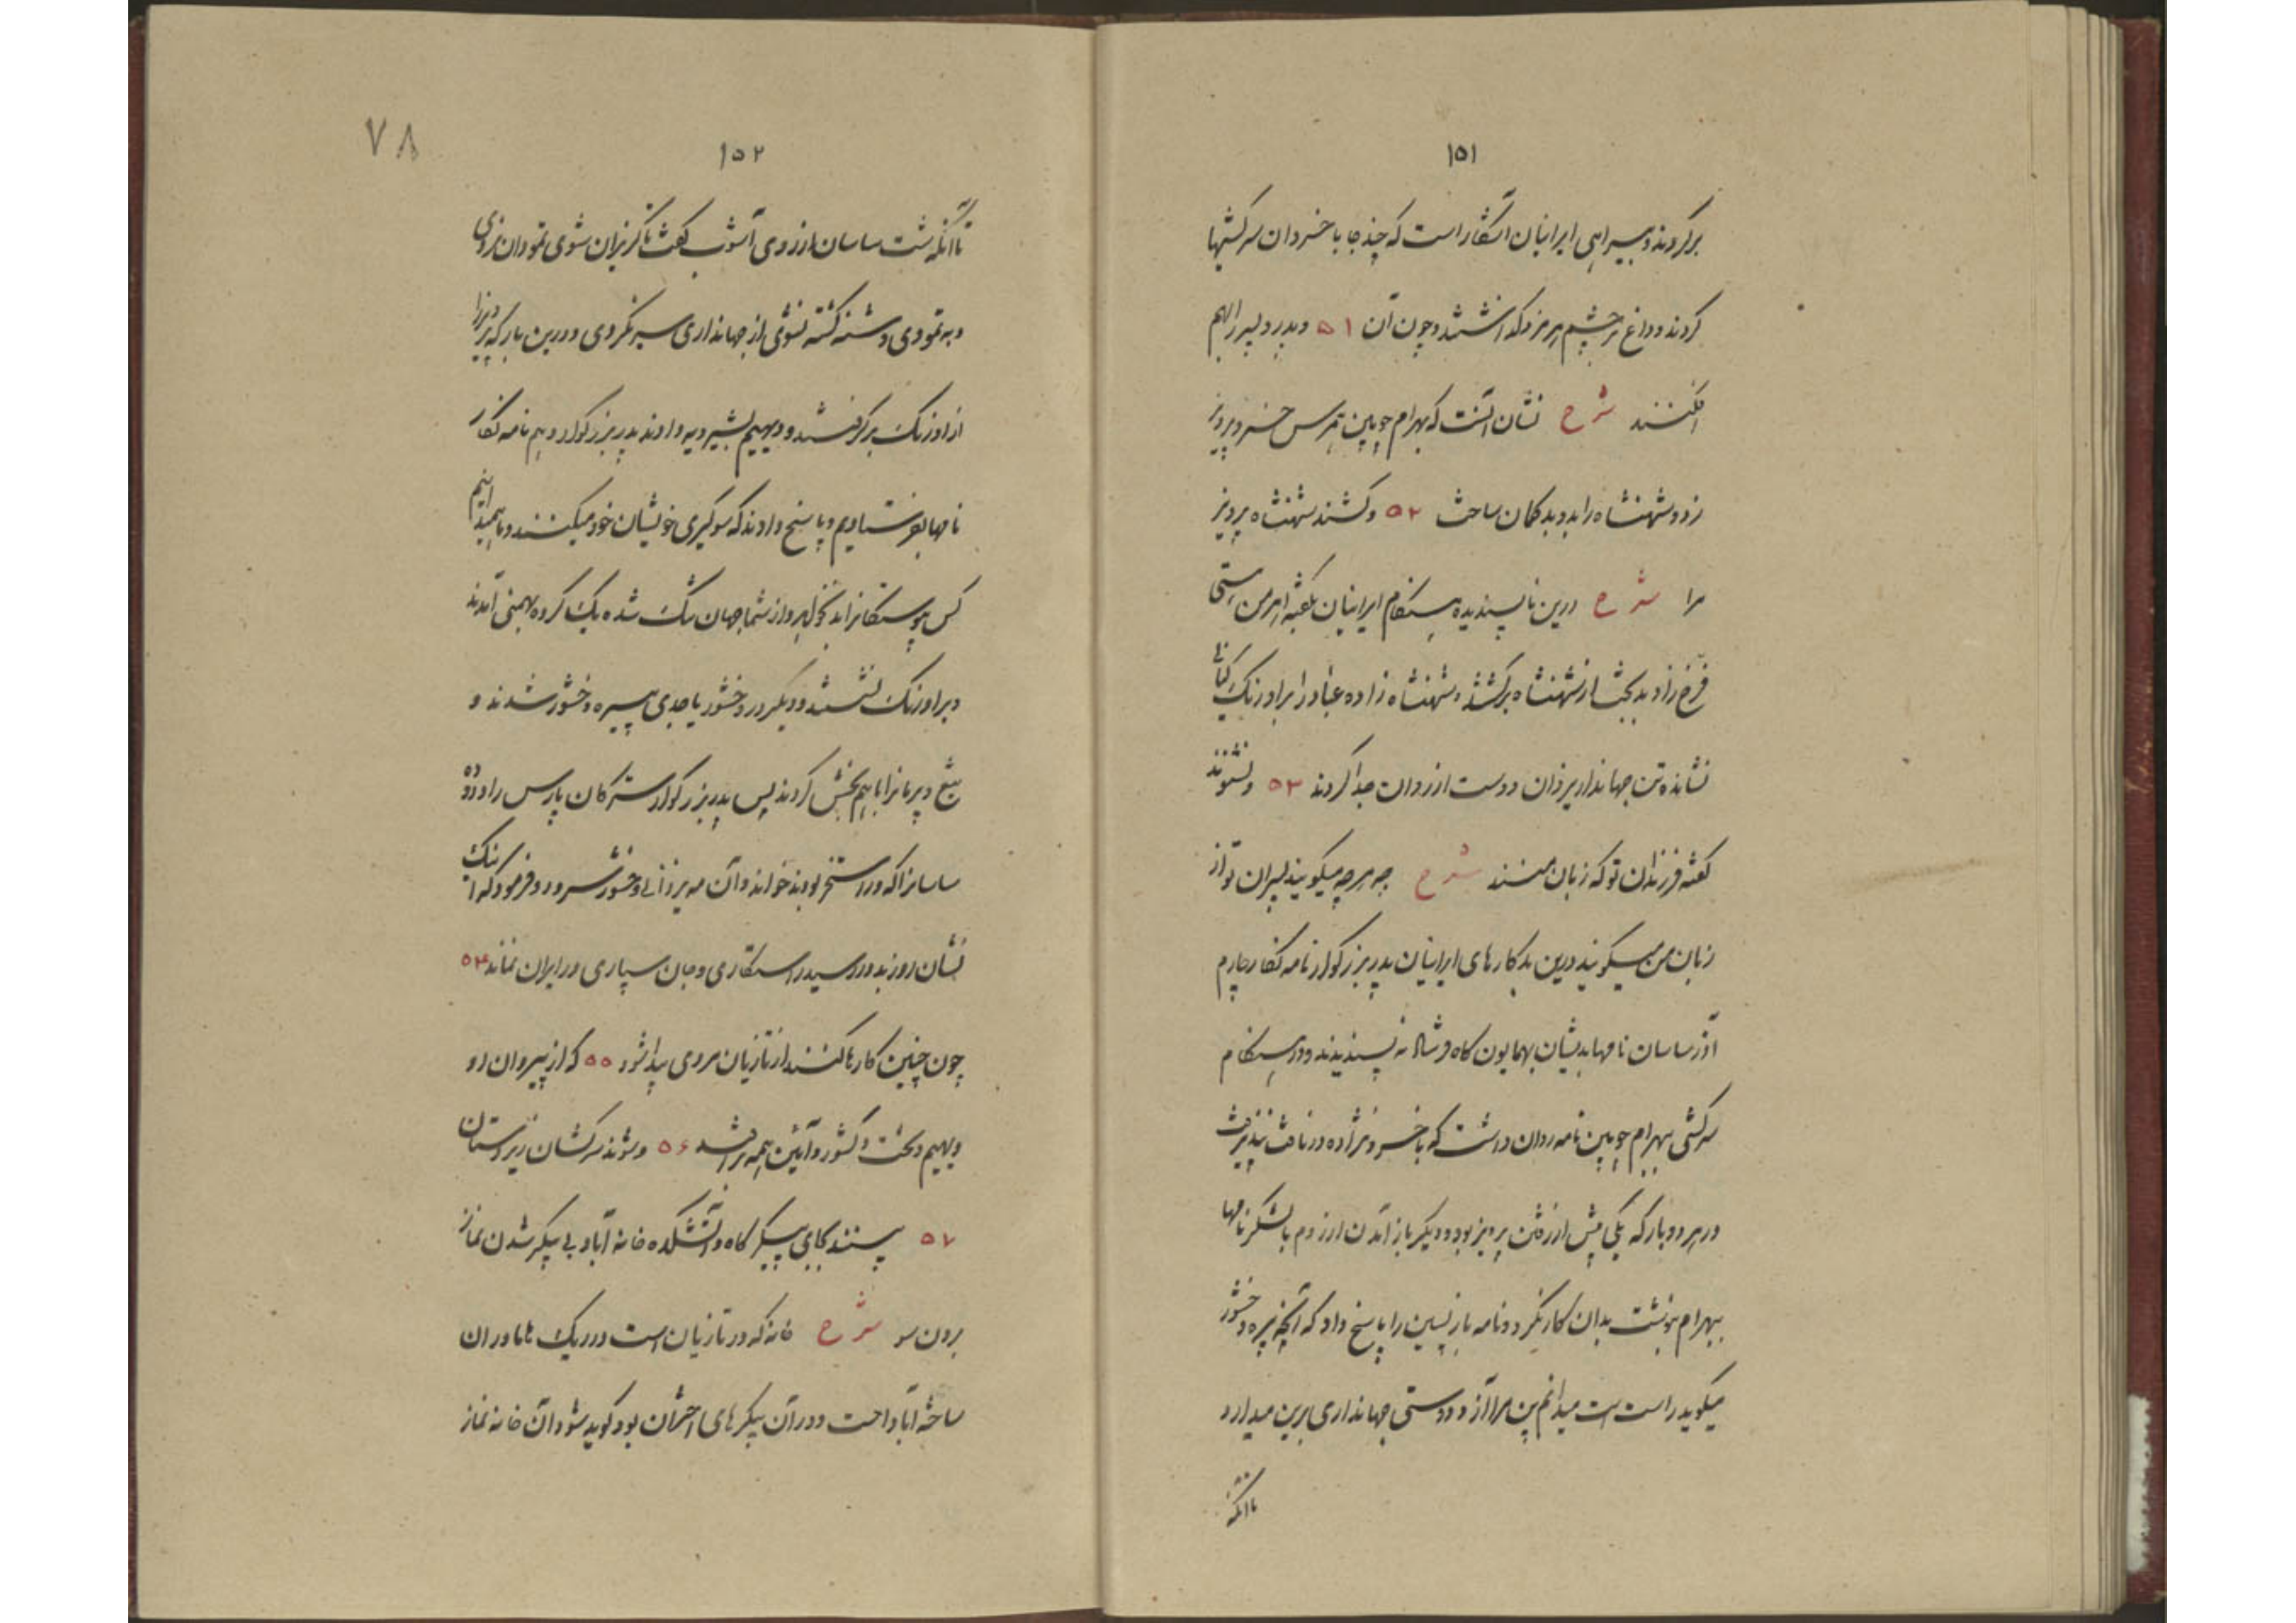 ۱۵۱
برکردند و بیراهی ایرانیان آشکار است که چند جا با خسروان سرکشیها
کردند و داغ بر چشم هرمزد گذاشتند و چون آن ۵۱ و پدر و پسر را بهم
افکنند شرح نشان آنست که بهرام چوبین بر خسرو پرویز
زد و شهنشاه را بدو بدگمان ساخت ۵۲ و کشند شهنشاه پرویز
مرا شرح درین ناپسندیده هنگام ایرانیان بگفته اهرمن
فرخ زاد بدبخت از شهنشاه برگشتند و شهنشاه زاده غباد را بر اورنگ کیانی
نشانده تن جهاندار یزدان دوست از روان جدا کردند ۵۳ و نشنوند
گفته فرزندان تو که زبان منند شرح چه هرچه میگویند پسران تو از
زبان من میگویند درین بدکارهای ایرانیان پدر بزرگوار نامه نگار چهارم
آذرساسان نامها بدیشان بهمایون گاه فرستاد نه پسندیدند و در هنگام
سرکشی بهرام چوبین نامه روان داشت که با خسرو نژاده در نافت نپذیرفت
در هر دو بار که یکی پیش از رفتن پرویز بود و دیگر باز آمدن از روم با لشکر نامها
ببهرام نوشت بدان کار نکرد و نامه بازپسین را پاسخ داد که آنچه نبیره وخشور
میگوید راست است میدانم پس مرا آز و دوستی جهانداری برین میدارد
تا آنکه
۷۸
۱۵۲
تا آنکه شت ساسان از روی آشوب گفت ناگزیران شوی نمودان نروی
و به نمودی و شنه کشته نشوی از جهانداری سیر نگردی و درین بار که پرویز را
از اورنگ برگرفتند و دیهیم بشیرویه دادند پدر بزرگوار و هم نامه نگار
نامها بفرستادیم و پاسخ دادند که سوگیری خویشان خود میکنند و ما همید انیم
کس پوستگانرا از شما جهان تنگ شده یک گروه بهمنی آمدند
و بر اورنگ نشستند و دیگر در وخشور یا جدی نبیره وخشور شدند و
تیغ و پرمانرا با هم بخش کردند پس پدر بزرگوار سترگان پارس را و دوده
ساسانرا که در استخر بودند خواند و آن مه یزدانی وخشور سرود و فرمود که اینک
نشان روز بد در رسید راستکاری و جان سپاری در ایران نماند ۵۴
چون چنین کارها کنند از تازیان مردی پیدا شود ۵۵ که از پیروان او
دیهیم و تخت و کشور و آئین همه برافتد ۵۶ و شوند سرکشان زیردستان
۵۷ بینند بجای پیکرگاه و آتشکده خانه آباد بی پیکر شدن نماز
بردن سو شرح خانه که در تازیان است در ریگ هاماوران
ساخته آباد است و در آن پیکرهای اختران بود گوید شود آن خانه نماز